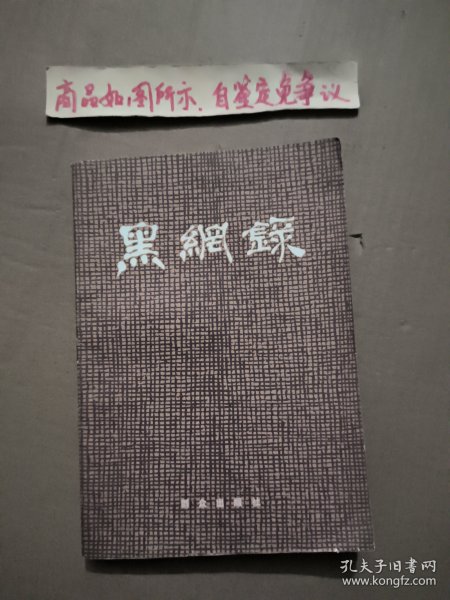 商品如图所示.自鉴定免争议
黑網錄
群众出版社
孔夫子旧书网
www.kongfz.com